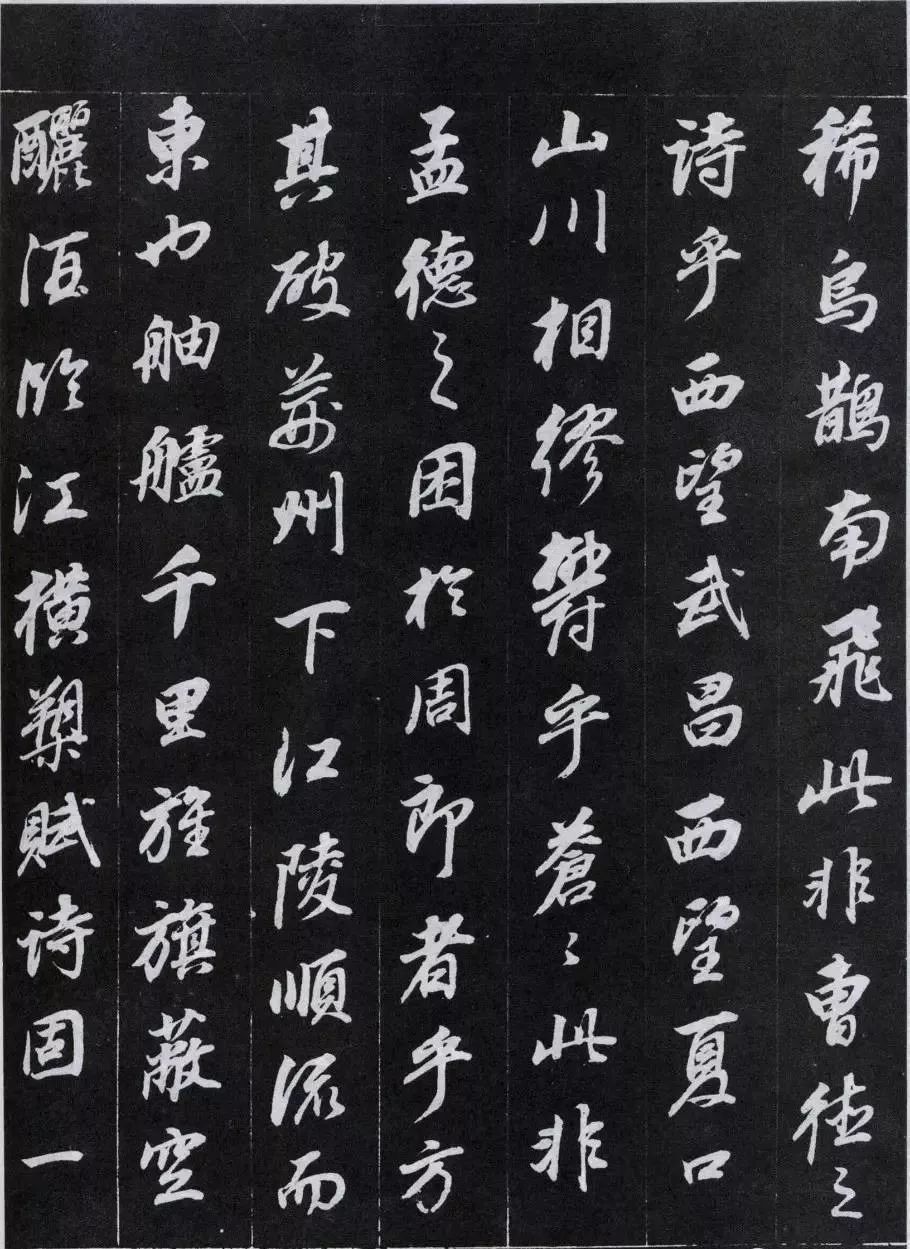 稀烏鵲南飛此非曹德之
詩乎西望武昌西望夏口
山川相繆鬱乎蒼〻此非
孟德之困於周郎者乎方
其破荊州下江陵順流而
東也舳艫千里旌旗蔽空
釃酒臨江橫槊賦詩固一